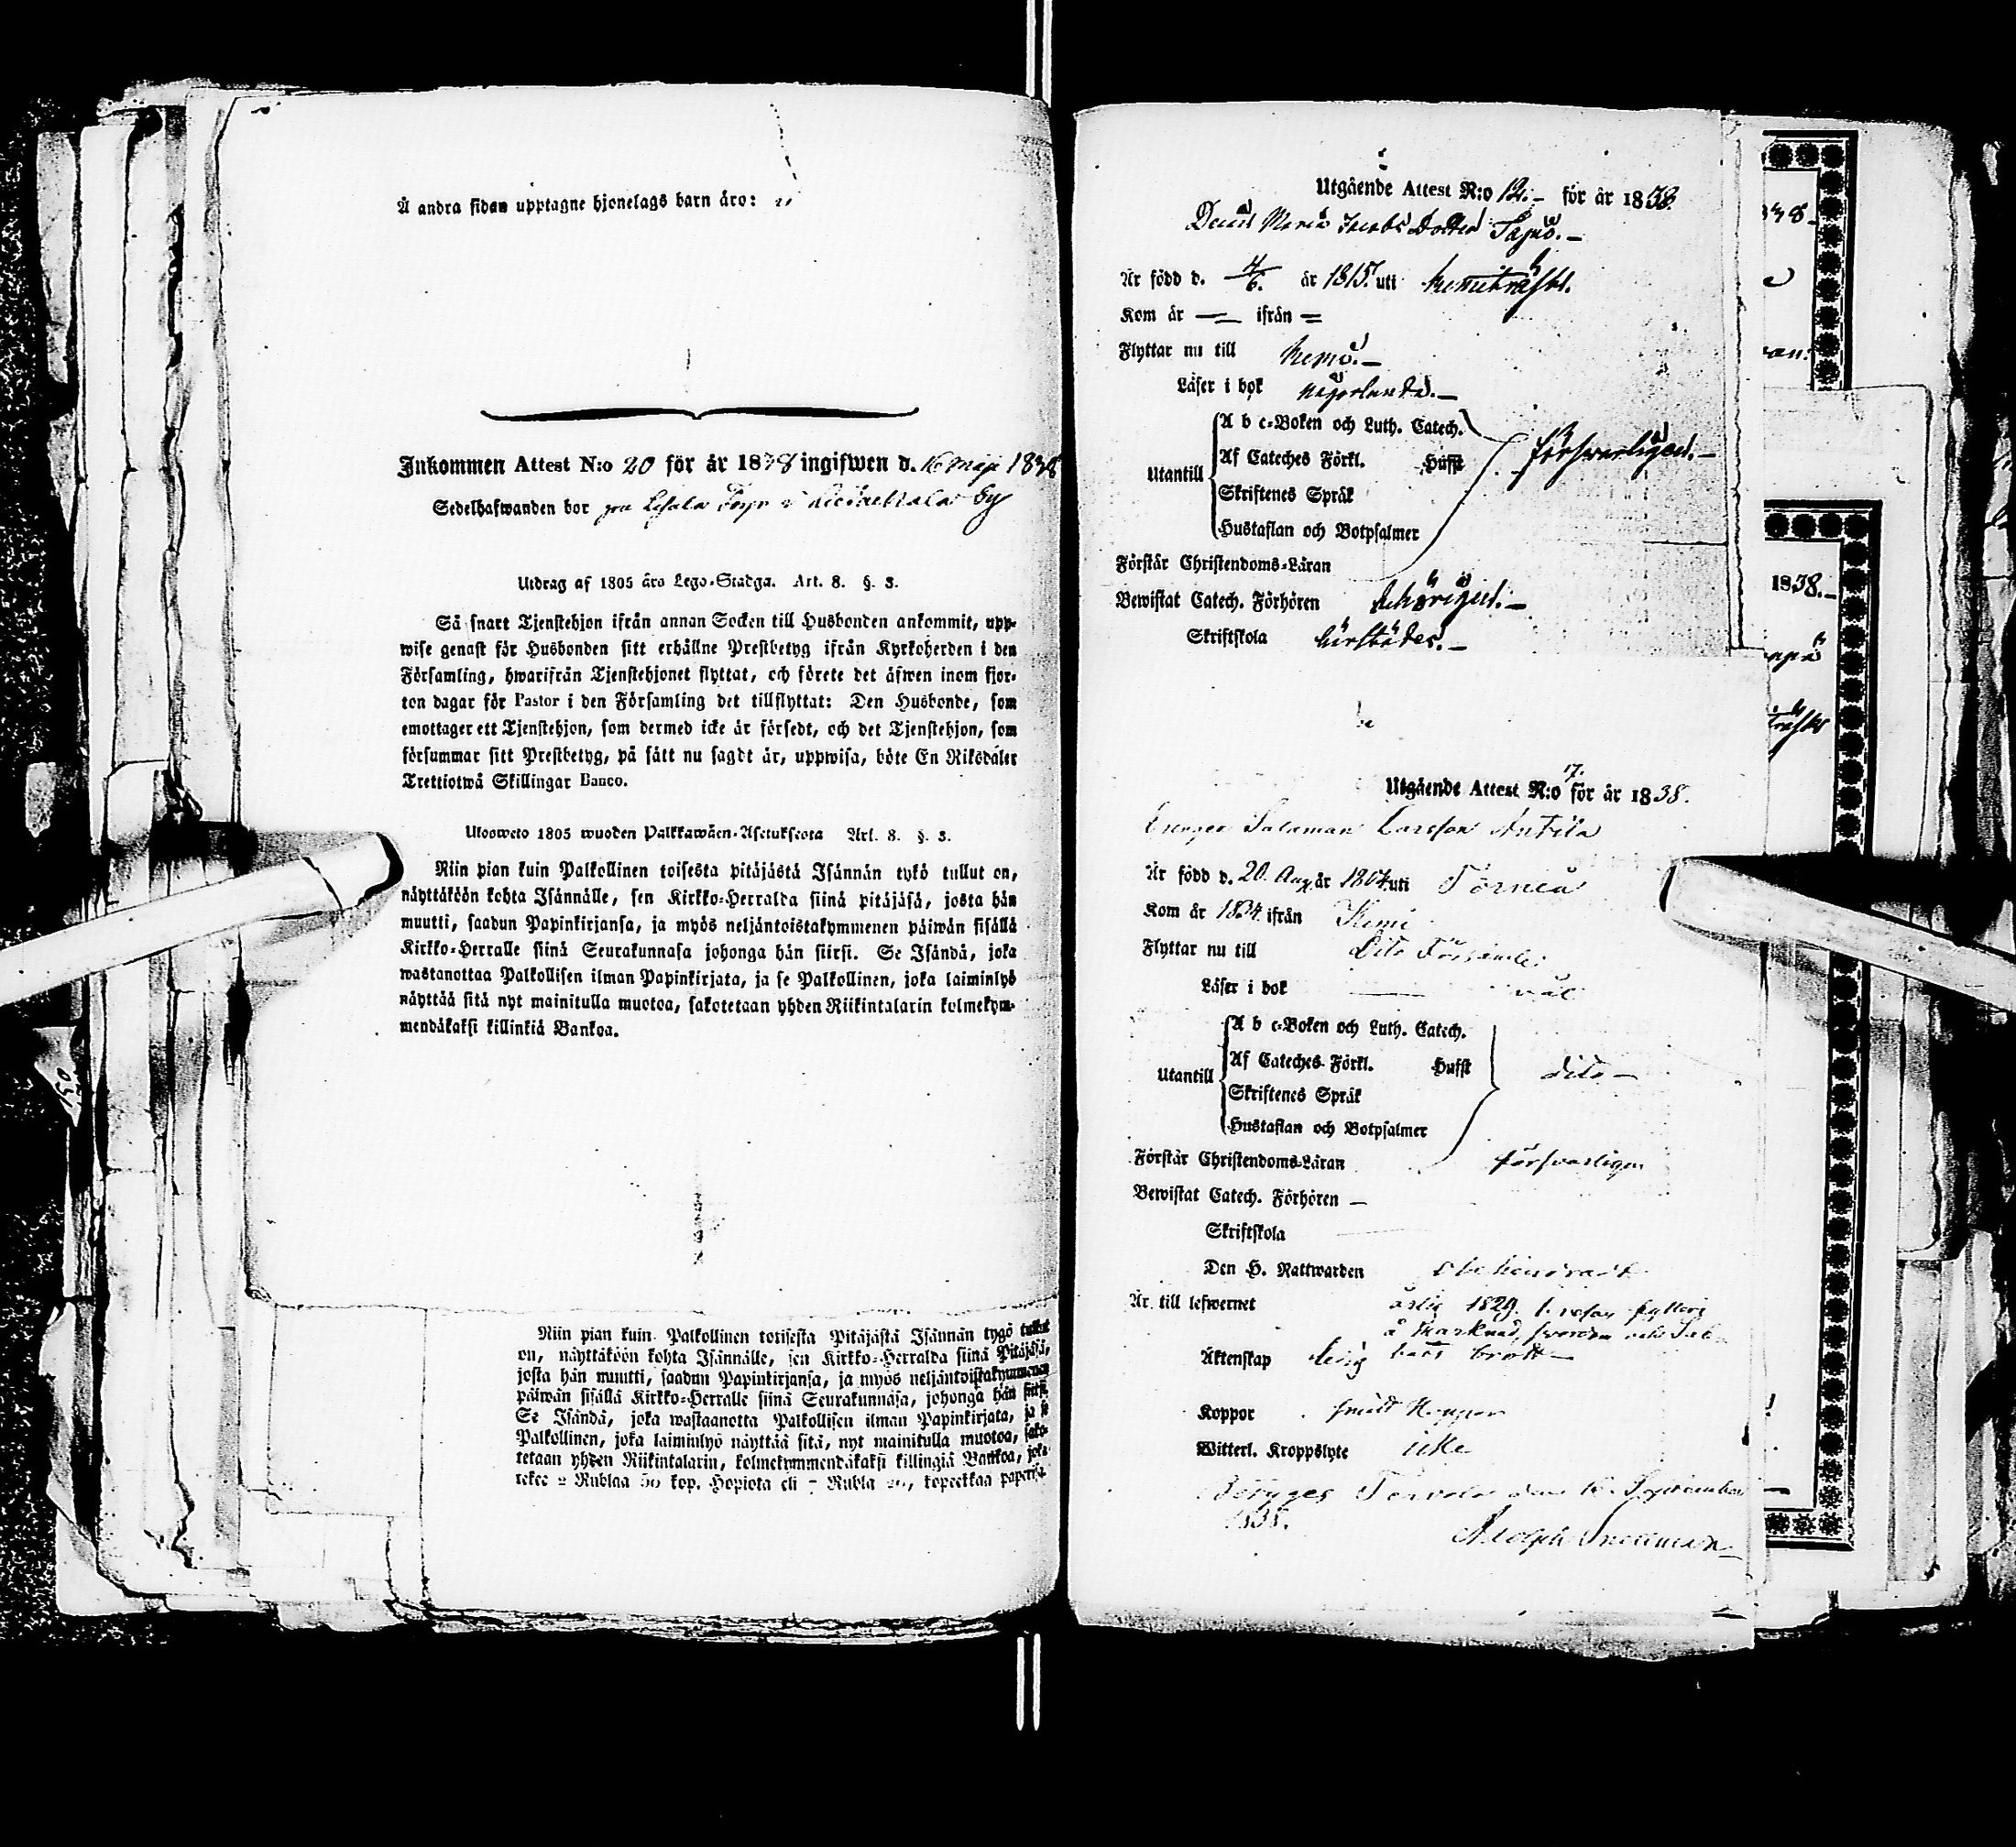 Å andra sidan upptagne hjonelags barn äro:
Inkommen Attest N:o 20 för år 1838 ingifwen d. 16 Maji 1838
Sedelhafwanden bor by
Utdrag af 1805 års Lego-Stadga. Art. 8. §. 3.
Så snart Tjenstehjon ifrån annan Socken till Husbonden ankommit, upp-
wise genast för Husbonden sitt erhållne Prestbetyg ifrån Kyrkoherden i den
Församling, hwarifrån Tjenstehjonet flyttat, och förete det äfwen inom fjor-
ton dagar för Pastor i den Församling det tillflyttat: Den Husbonde, som
emottager ett Tjenstehjon, som dermed icke är försedt, och det Tjenstehjon, som
försummar sitt Prestbetyg, på sätt nu sagdt är, uppwisa, böte En Riksdaler
Trettiotwå Skillingar Banco.
Ulosweto 1805 wuoden Palkkawäen-Asetuksesta Art. 8. §. 3.
Niin pian kuin Palkollinen toisesta pitäjästä Isännän tykö tullut on,
näyttäköön kohta Isännälle, sen Kirkko-Herralda siinä pitäjäsä, josta hän
muutti, saadun Papinkirjansa, ja myös neljäntoistakymmenen päiwän sisällä
Kirkko-Herralle siinä Seurakunnasa johonga hän siirsi. Se Isändä, joka
wastanottaa Palkollisen ilman Papinkirjata, ja se Palkollinen, joka laiminlyö
näyttää sitä nyt mainitulla muotoa, sakotetaan yhden Riikintalarin kolmekym-
mendäkaksi killinkiä Bankoa.
Niin pian kuin Palkollinen toisesta Pitäjästä Isännän tygö tullut
on, näyttäköön kohta Isännälle, sen Kirkko-Herralda siinä Pitäjäsä,
josta hän muutti, saadun Papinkirjansa, ja myös neljäntoistakymmenen
päiwän sisällä Kirkko-Herralle siinä Seurakunnasa, johonga hän siirsi.
Se Isändä, joka wastaanotta Palkollisen ilman Papinkirjata, ja se
Palkollinen, joka laiminlyö näyttää sitä, nyt mainitulla muotoa, sako-
tetaan yhden Riikintalarin, kolmekymmendäkaksi killingiä Bankoa, joka
tekee 2 Rublaa 50 kop. Hopiota eli 7 Rubla kopeekkaa paperisa
Utgående Attest N:o 12. för år 1838.
Maria Jacobs Dotter
Är född d. 4/6. år 1815. uti Kemiträsk
Kom år ifrån
Flyttar nu till Kemi
Läser i bok någorlunda.
Utantill
A b c-Boken och Luth. Catech.
Af Cateches Förkl. Hufst försvarligen.
Skriftenes Språk
Hustaflan och Botpsalmer
Förstår Christendoms-Läran
Bewistat Catech. Förhören behörigen.
Skriftskola härstädes.
Utgående Attest N:o 17. för år 1838.
Drengen Salamon Larsson Antila
Är född d. 20 Aug. år 1804 uti Torneå
Kom år 1834 ifrån Kemi
Flyttar nu till Dito Församl.
Läser i bok väl
Utantill
A b c-Boken och Luth. Catech.
Af Cateches Förkl. Hufst dito
Skriftenes Språk
Hustaflan och Botpsalmer
Förstår Christendoms-Läran försvarligen
Bewistat Catech. Förhören
Skriftskola
Den H. Nattwarden obehindradt
Är till lefwernet årlig 1829. fylleri
å Marknad, svordom och Sab-
Äktenskap ledig bats brott
Koppor haft Koppor
Witterl. Kroppslyte icke
Betygas Tervola den 16 September
1838.
Adolph Snellman
1838.
150